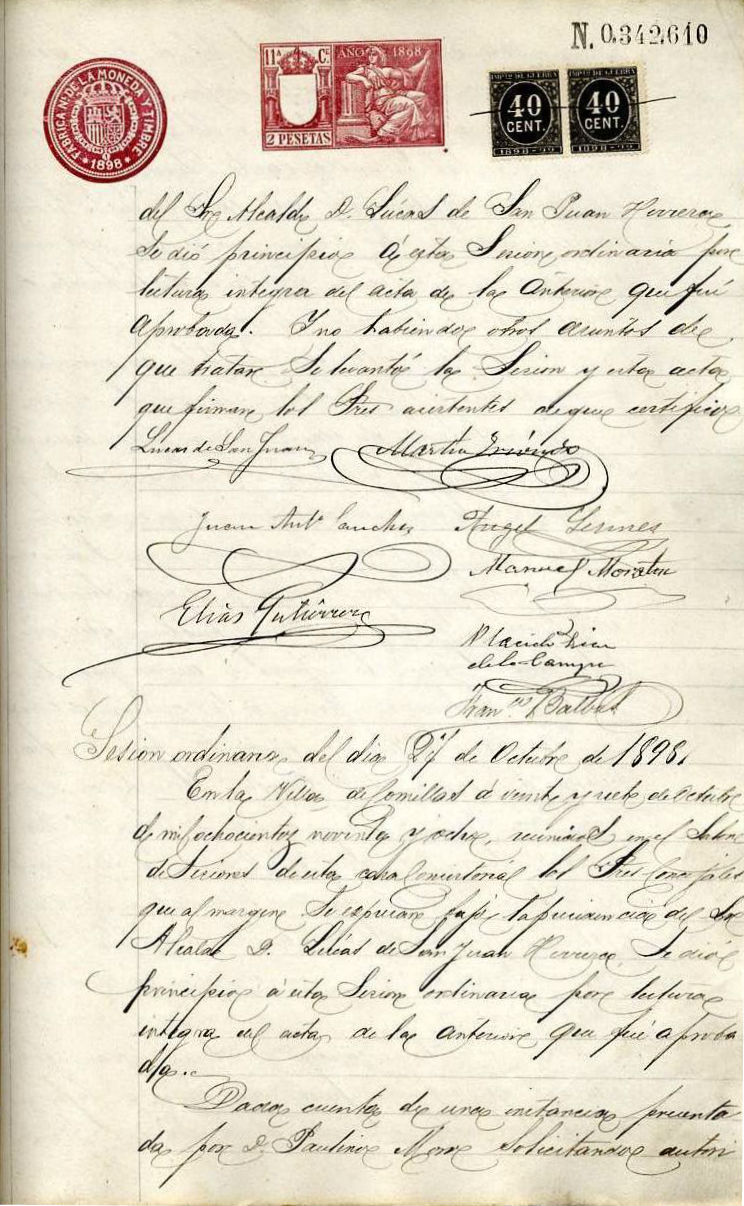 N. 0.342,610
FABRICA N. DE LA MONEDA Y TIMBRE
1898
11ª Cª AÑO 1898
2 PESETAS
IMPTO DE GUERRA
40
CENT.
1898-99
IMPTO DE GUERRA
40
CENT.
1898-99
del Sr Alcalde D. Lúcas de San Juan Herrera
se dió principio á esta Sesion ordinaria por
lectura integra del acta de la Anterior que fué
aprobada. Y no habiendo otros asuntos de
que tratar se levantó la Sesion y esta acta
que firman los Sres asistentes de que certifico
Lucas de San Juan
Martin
Juan Antº Sanchez
Angel
Manuel
Elias Gutiérrez
Placido
de la Campa
Franco Balbas
Sesion ordinaria del dia 27 de Octubre de 1898.
En la Villa de Comillas á veinte y siete de Octubre
de mil ochocientos noventa y ocho, reunidos en el Salon
de Sesiones de esta casa Consistorial los Sres Concejales
que al margen se expresan bajo la presidencia del Sr
Alcalde D. Lúcas de San Juan Herrera, se dió
principio á esta Sesion ordinaria por lectura
integra del acta de la anterior que fué aproba
da.
Dada cuenta de una instancia presenta
da por D. Paulino solicitando autori